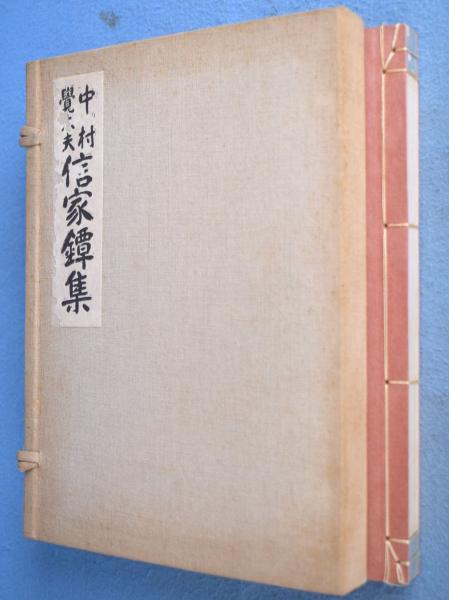 中村
覺太夫
信家鐔集